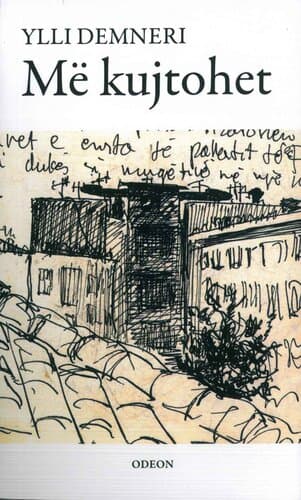 YLLI DEMNERI
Më kujtohet
vet e
të pallatit
i dukes
në një
ODEON